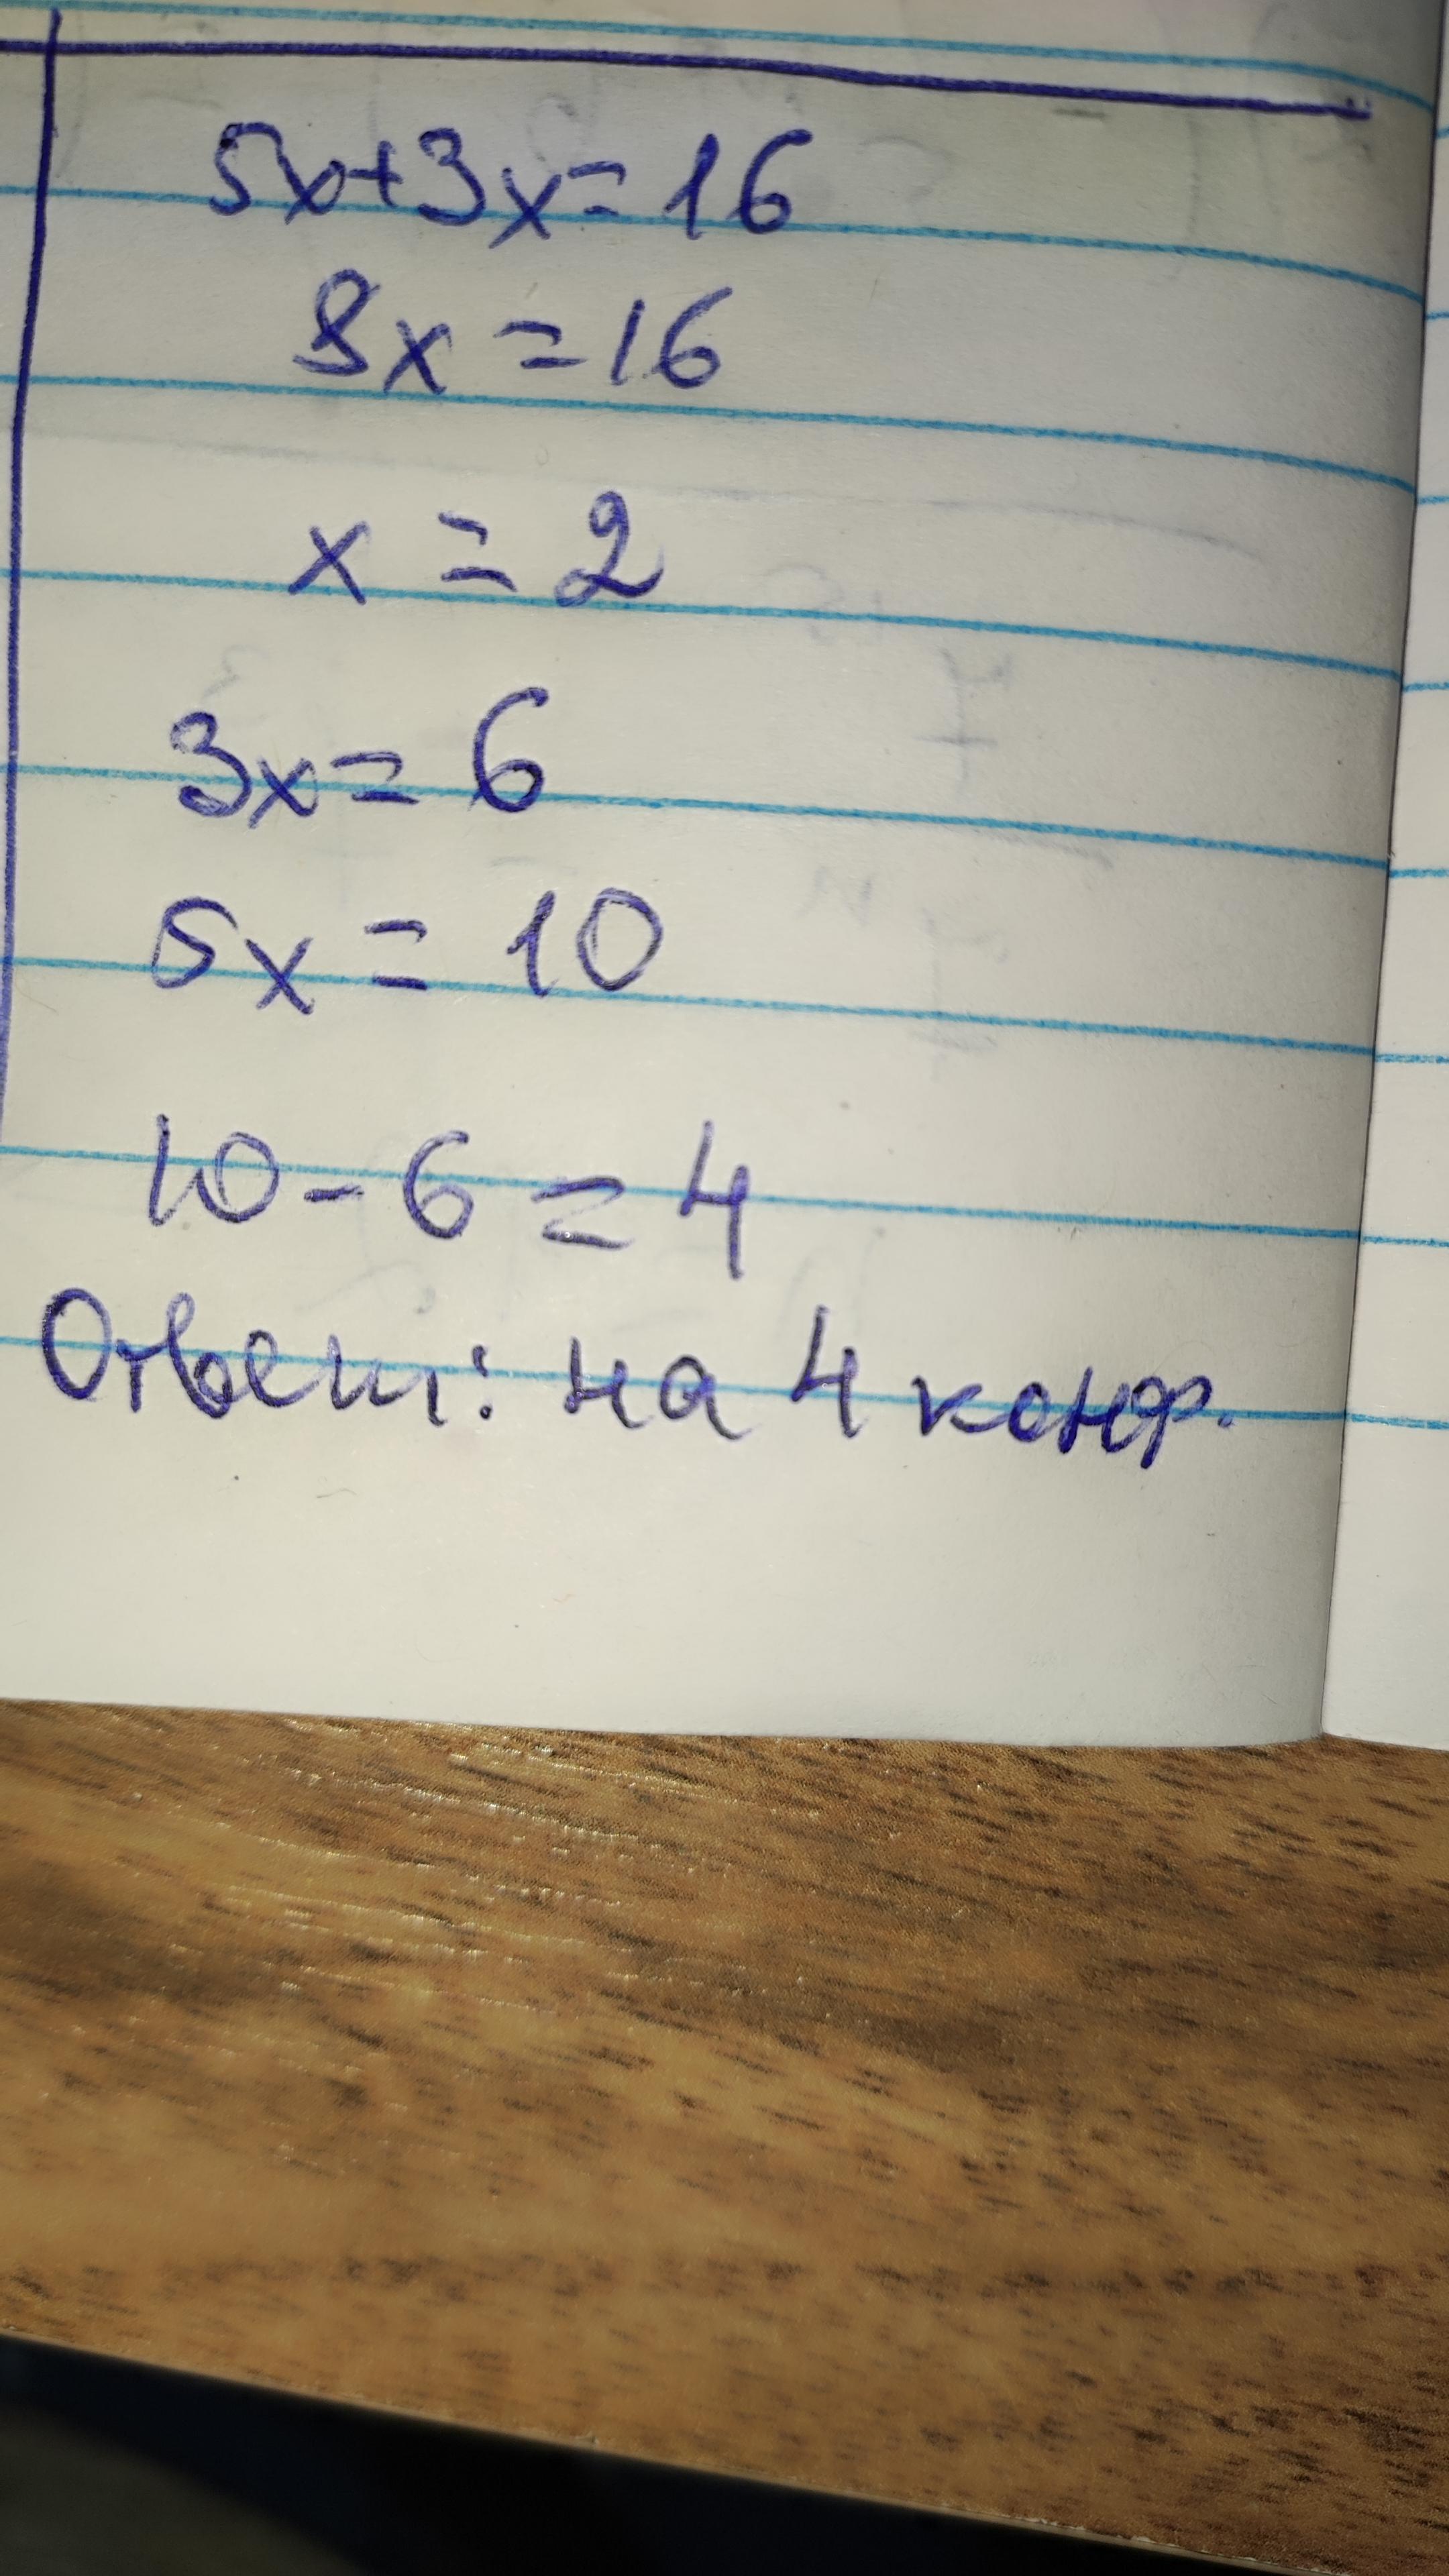 5x+3x=16
8x=16
x=2
3x=6
5x=10
10-6=4
Ответ: на 4 конф.